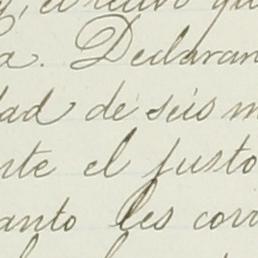 , el recivo qu
a. Declaran
dad de seis m
nte el justo
anto les corr